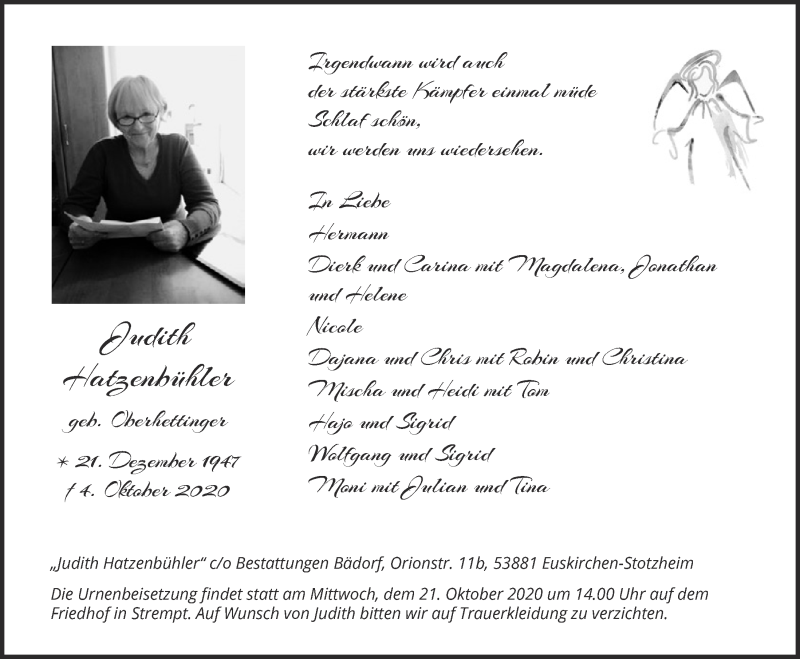 Irgendwann wird auch
der stärkste Kämpfer einmal müde
Schlaf schön,
wir werden uns wiedersehen.
In Liebe
Hermann
Dierk und Carina mit Magdalena, Jonathan
und Helene
Nicole
Dajana und Chris mit Robin und Christina
Mischa und Heidi mit Tom
Hajo und Sigrid
Wolfgang und Sigrid
Moni mit Julian und Tina
Judith
Hatzenbühler
geb. Oberhettinger
* 21. Dezember 1947
† 4. Oktober 2020
„Judith Hatzenbühler“ c/o Bestattungen Bädorf, Orionstr. 11b, 53881 Euskirchen-Stotzheim
Die Urnenbeisetzung findet statt am Mittwoch, dem 21. Oktober 2020 um 14.00 Uhr auf dem
Friedhof in Strempt. Auf Wunsch von Judith bitten wir auf Trauerkleidung zu verzichten.